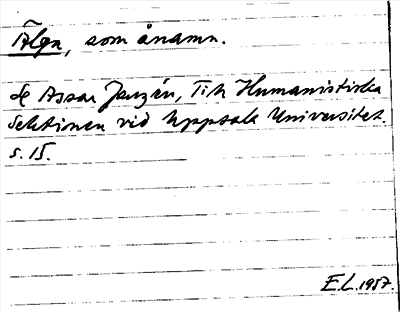 Älgn, som ånamn.
se Assar Janzén, Till Humanistiska
Sektionen vid Uppsala Universitet.
s. 15.
E.L. 1957.